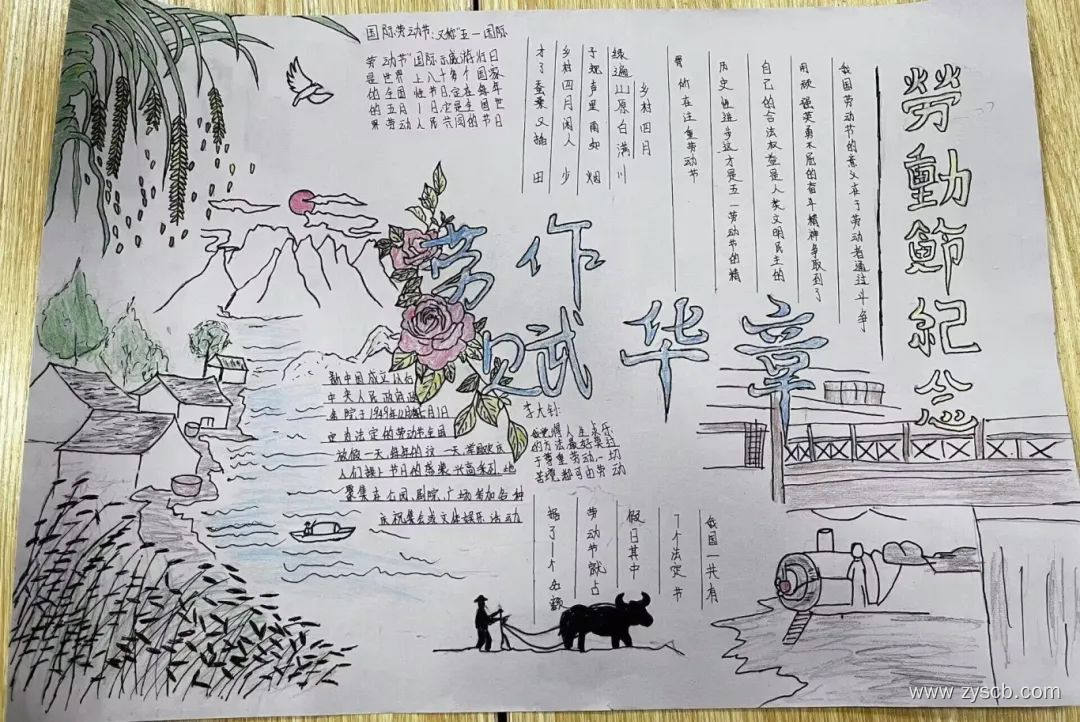 勞動節紀念
劳作
赋华章
国际劳动节:又称"五一国际
劳动节"国际示威游行日
是世界上八十多个国家
的全国性节日,定在每年
的五月一日,它是全国世
界劳动人民共同的节日
乡村四月
绿遍山原白满川
子规声里雨如烟
乡村四月闲人少
才了蚕桑又插田
我国劳动节的意义在于劳动者通过斗争
用顽强英勇不屈的奋斗精神争取到了
自己的合法权益是人类文明民主的
历史性进步这才是五一劳动节的精
所在注重劳动节
新中国成立以后
中央人民政府政
务院于1949年12月将5月1日
法定的劳动节全国
放假一天,每年的这一天,举国欢庆
人们换上节日的盛装,兴高采烈地
聚集在公园、剧院、广场参加各种
庆祝集会或文体娱乐活动
李大钊:
我觉得人生求乐
的方法最好莫过
于尊重劳动一切
苦境,都可由劳动
我国一共有
了个法定节
假日其中
劳动节就占
据了一个名额
www.zyscb.com